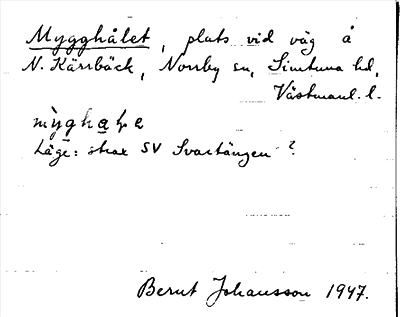 Mygghålet, plats vid väg å
N. Kärrbäck, Norrby sn, Simtuna hd,
Västmanl. l.
Läge: strax SV Svartängen ?
Bernt Johansson 1947.